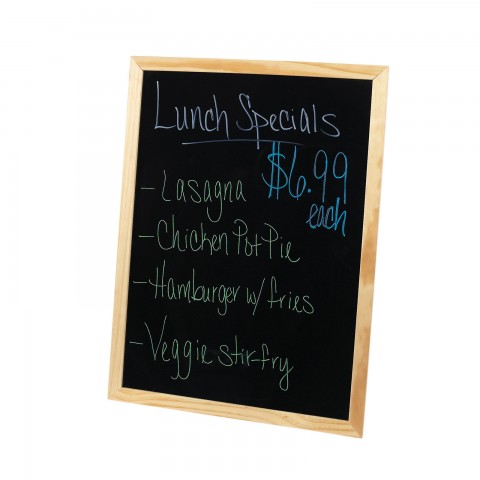 Lunch Specials
$6.99
each
- Lasagna
- Chicken Pot Pie
- Hamburger w/ fries
- Veggie stir-fry